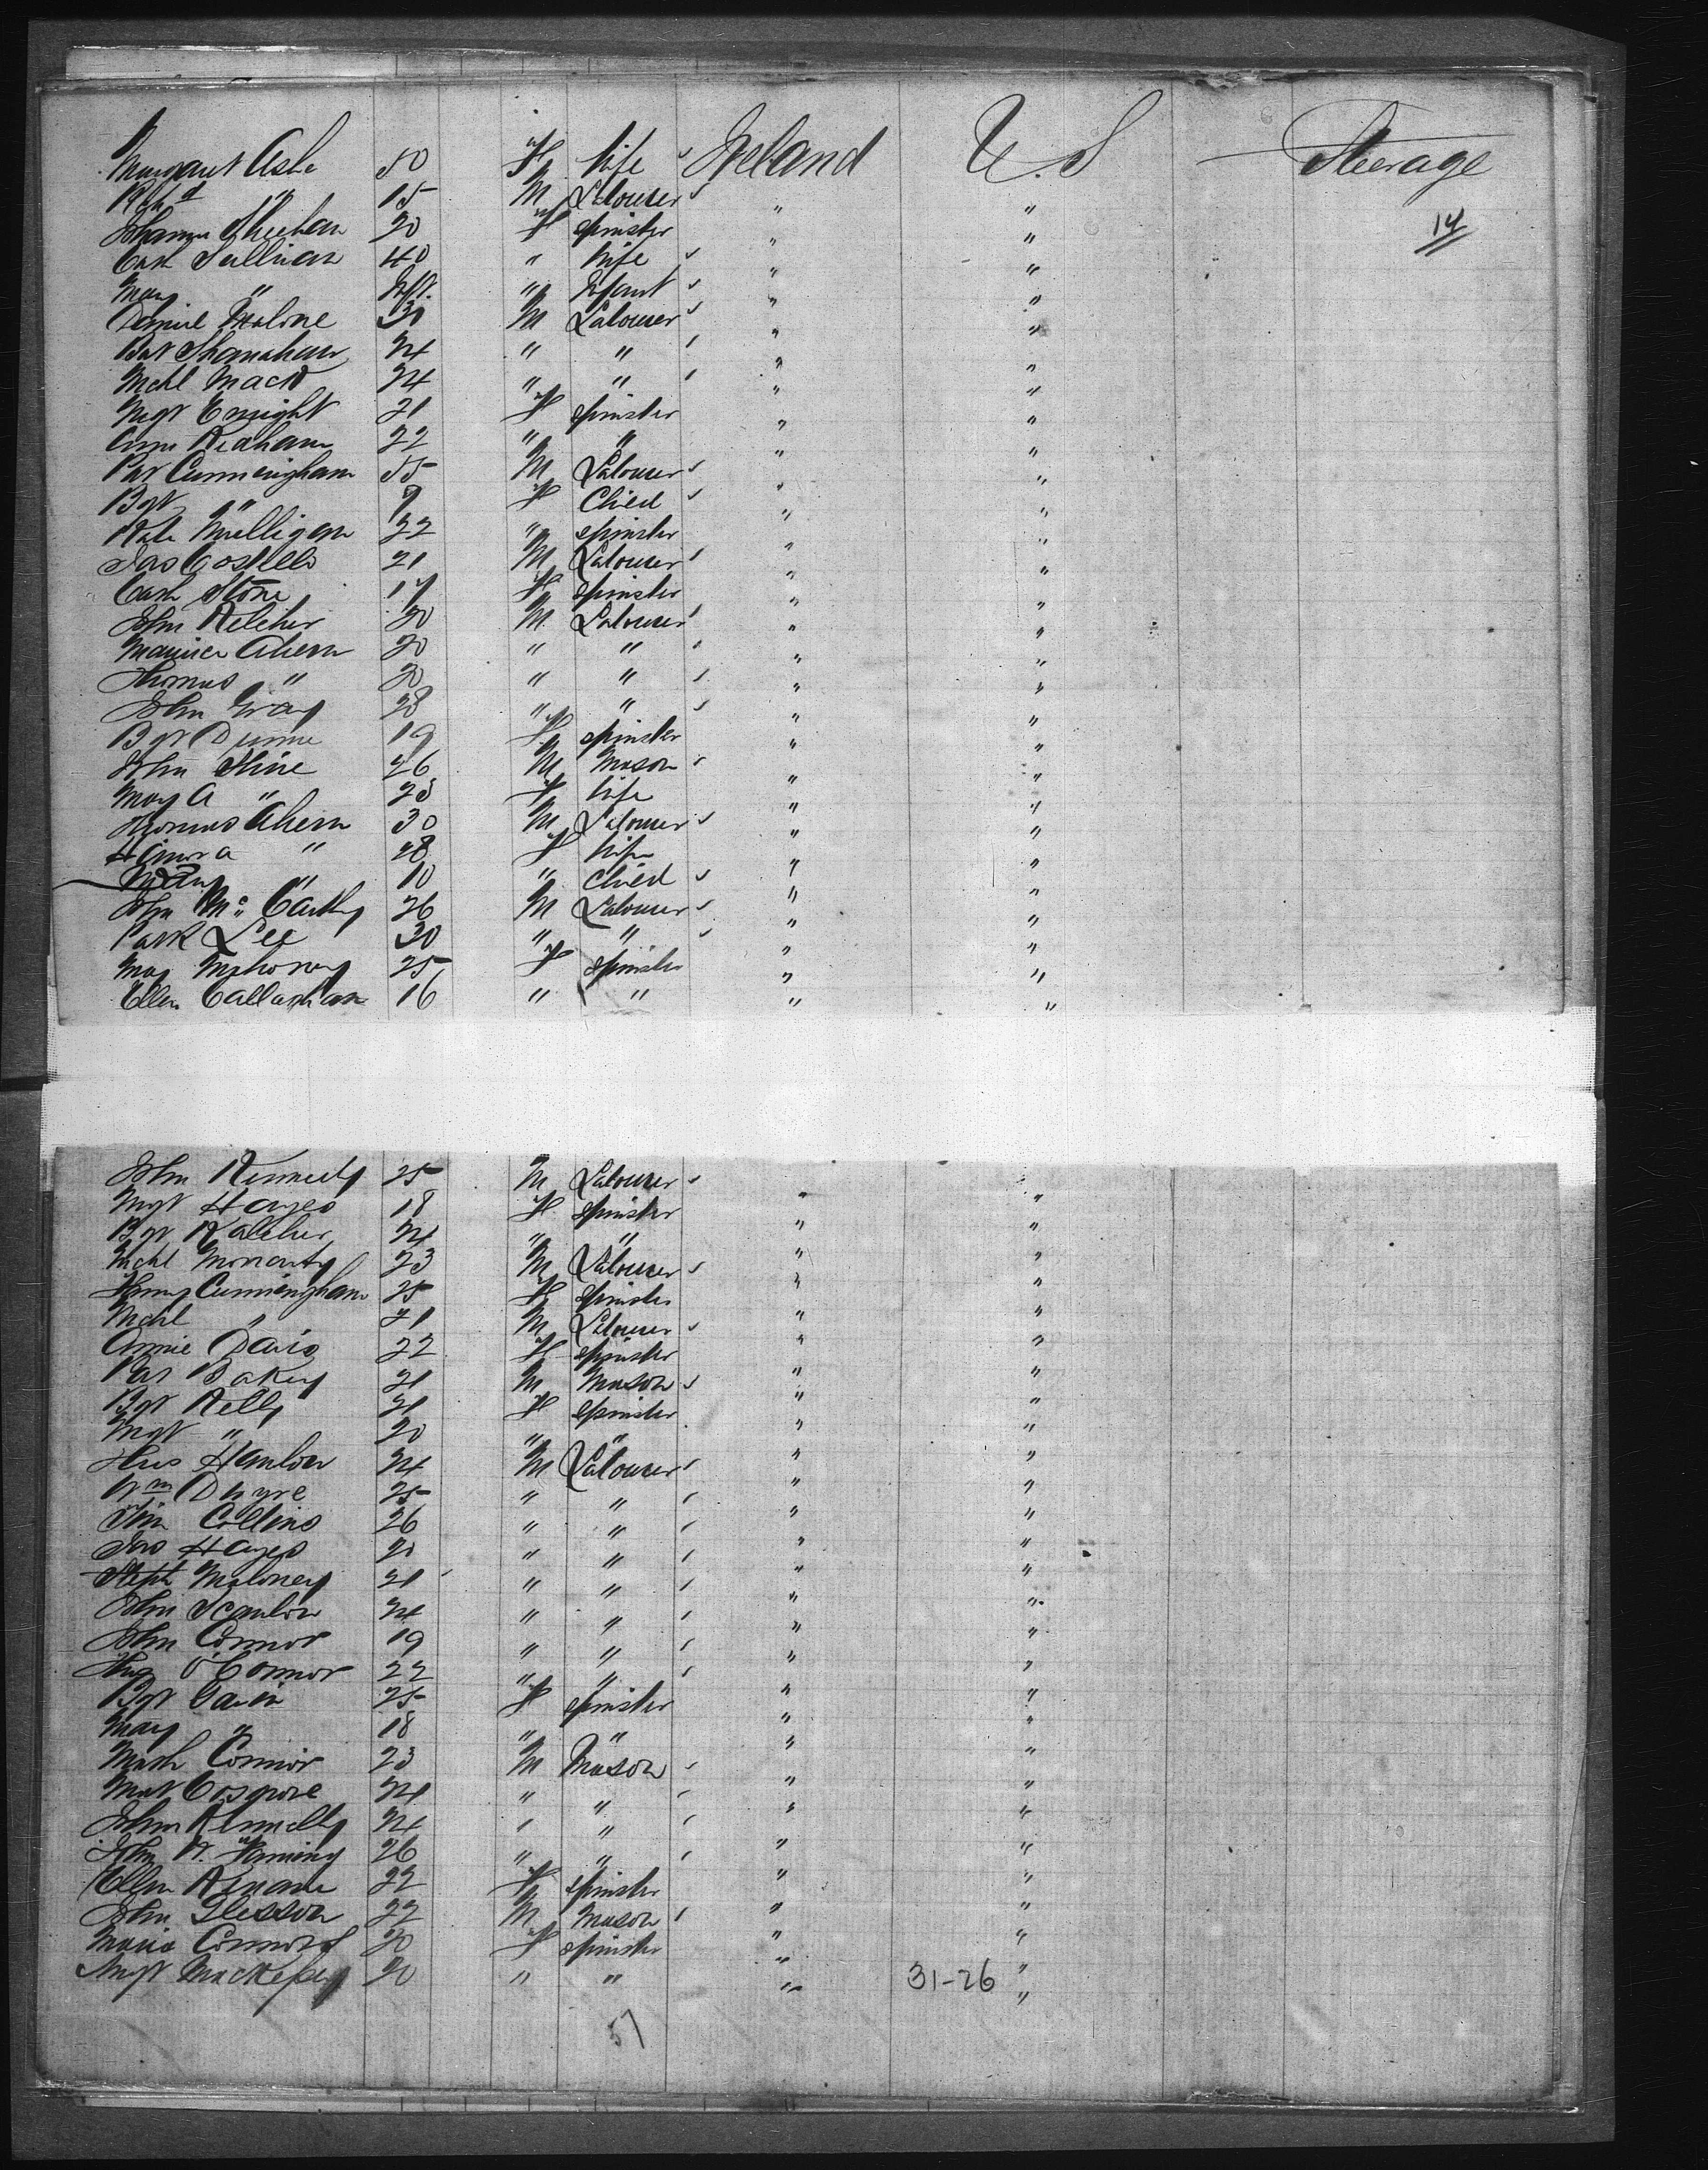 Margaret Ashe 50 F Wife Ireland U.S Steerage
Rich d " 15 M Labourer " "
14
Johanna Sheehan 20 F Spinster " "
Cath Sullivan 40 " Wife " "
Mary " Inft. " Infant " "
Daniel Malone 30 M Labourer " "
Pat Shanahan 24 " " " "
Mchl Mack 24 " " " "
Mgt Enright 21 F Spinster " "
Ann 22 " " " "
Pat Cunningham 55 M Labourer " "
Bgt " 9 F Child " "
Kate Mulligan 22 " Spinster " "
Jas Costello 21 M Labourer " "
Cath Stone 17 F Spinster " "
John Kelcher 20 M Labourer " "
Maurice Ahern 20 " " " "
Thomas " 20 " " " "
John Gray 28 " " " "
Bgt Dunne 19 F Spinster " "
John Hine 26 M Mason " "
Mary A " 25 F Wife " "
Thomas Ahern 30 M Labourer " "
Honora " 28 F Wife " "
Mary " 10 " Child " "
John Mc Carthy 26 M Labourer " "
Patk Lee 30 " " " "
Mary Mahoney 25 F Spinster " "
Ellen Callaghan 16 " " " "
John Kennedy 25 M Labourer " "
Mgt Hayes 18 F Spinster " "
Bgt Kalcher 24 " " " "
Mchl Moriarty 23 M Labourer " "
Cunningham 25 F Spinster " "
Mchl " 21 M Labourer " "
Annie Davis 22 F Spinster " "
Pat Bakey 21 M Mason " "
Bgt Kelly 21 F Spinster " "
Mgt " 20 " " " "
Thos Hanlon 24 M Labourer " "
Wm Dwyre 25 " " " "
Tim Collins 26 " " " "
Jas Hayes 20 " " " "
Steph Maloney 21 " " " "
John Scanlon 24 " " " "
John Connor 19 " " " "
O'Connor 22 " " " "
Bgt Gavin 25 F Spinster " "
Mary " 18 " " " "
Math Connor 23 M Mason " "
Mat Cosgrove 24 " " " "
John Kennelly 24 " " " "
John 26 " " " "
Ellen Kinane 22 F Spinster " "
John Glesson 22 M Mason " "
Maria Connors 20 F Spinster " "
Mgt 20 " " " 31-26 "
57